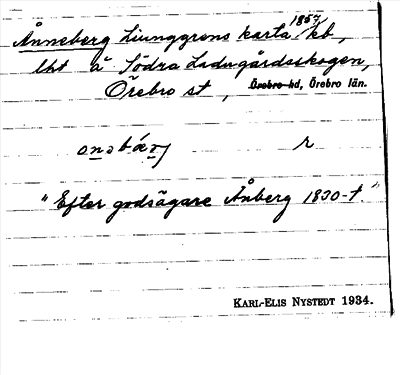 Ånneberg Ljunggrens karta 1857 kb,
lht å Södra Ladugårdsskogen,
Örebro st, Örebro hd, Örebro län.
r
"Efter godsägare Ånberg 1830-t."
KARL-ELIS NYSTEDT 1934.